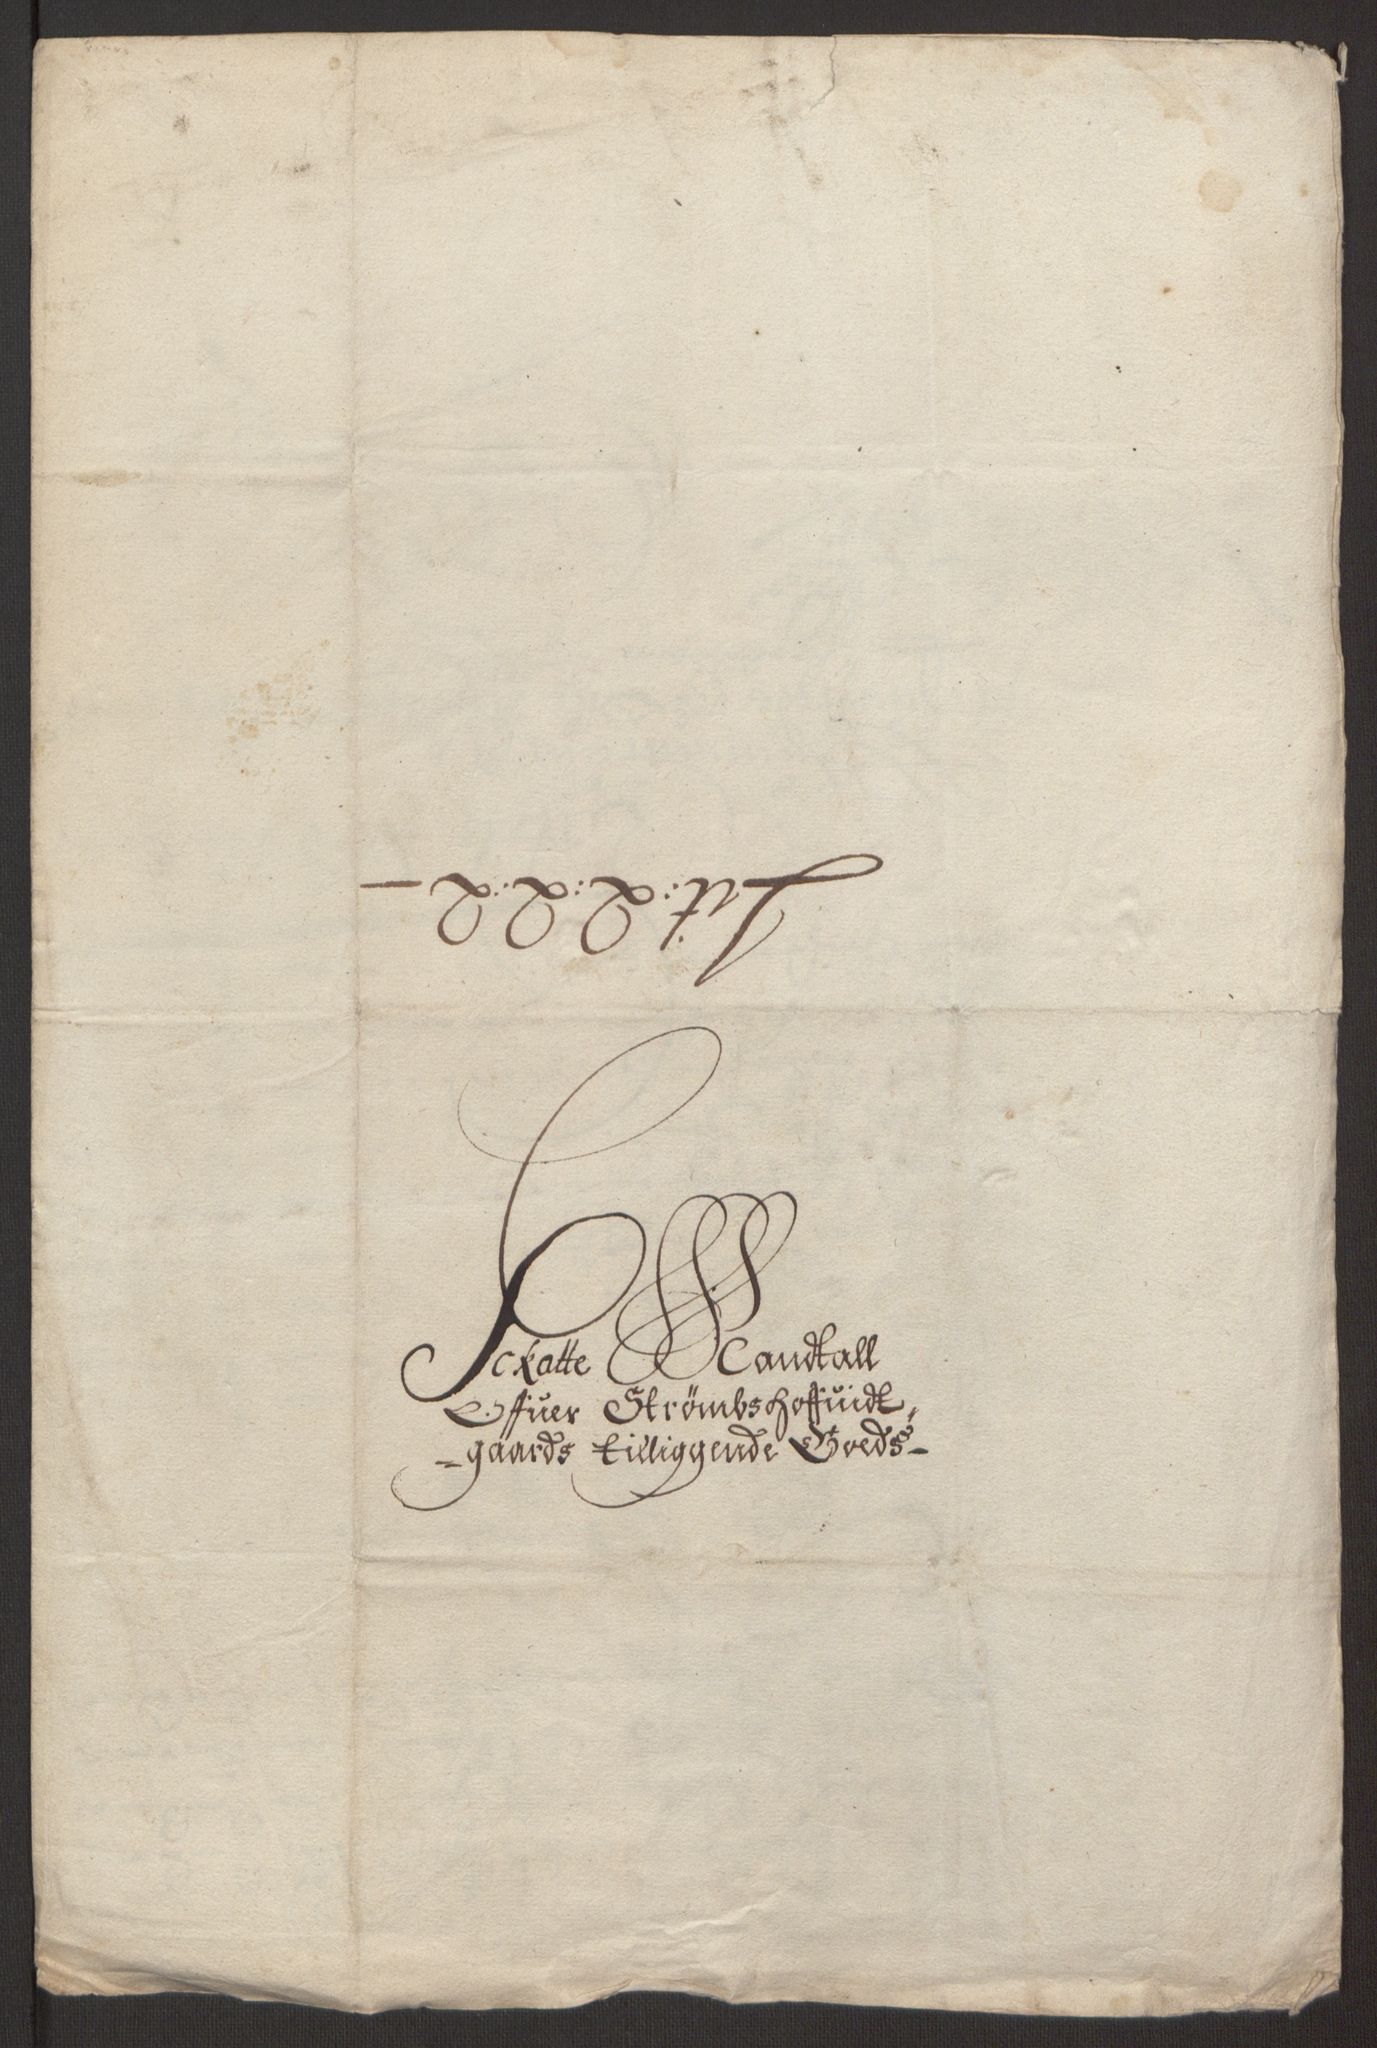 Lit: Q: Q: Q –
Schatte Mandtall
Offuer Strømbshoffuidt,
-gaards tilliggende Goeds-